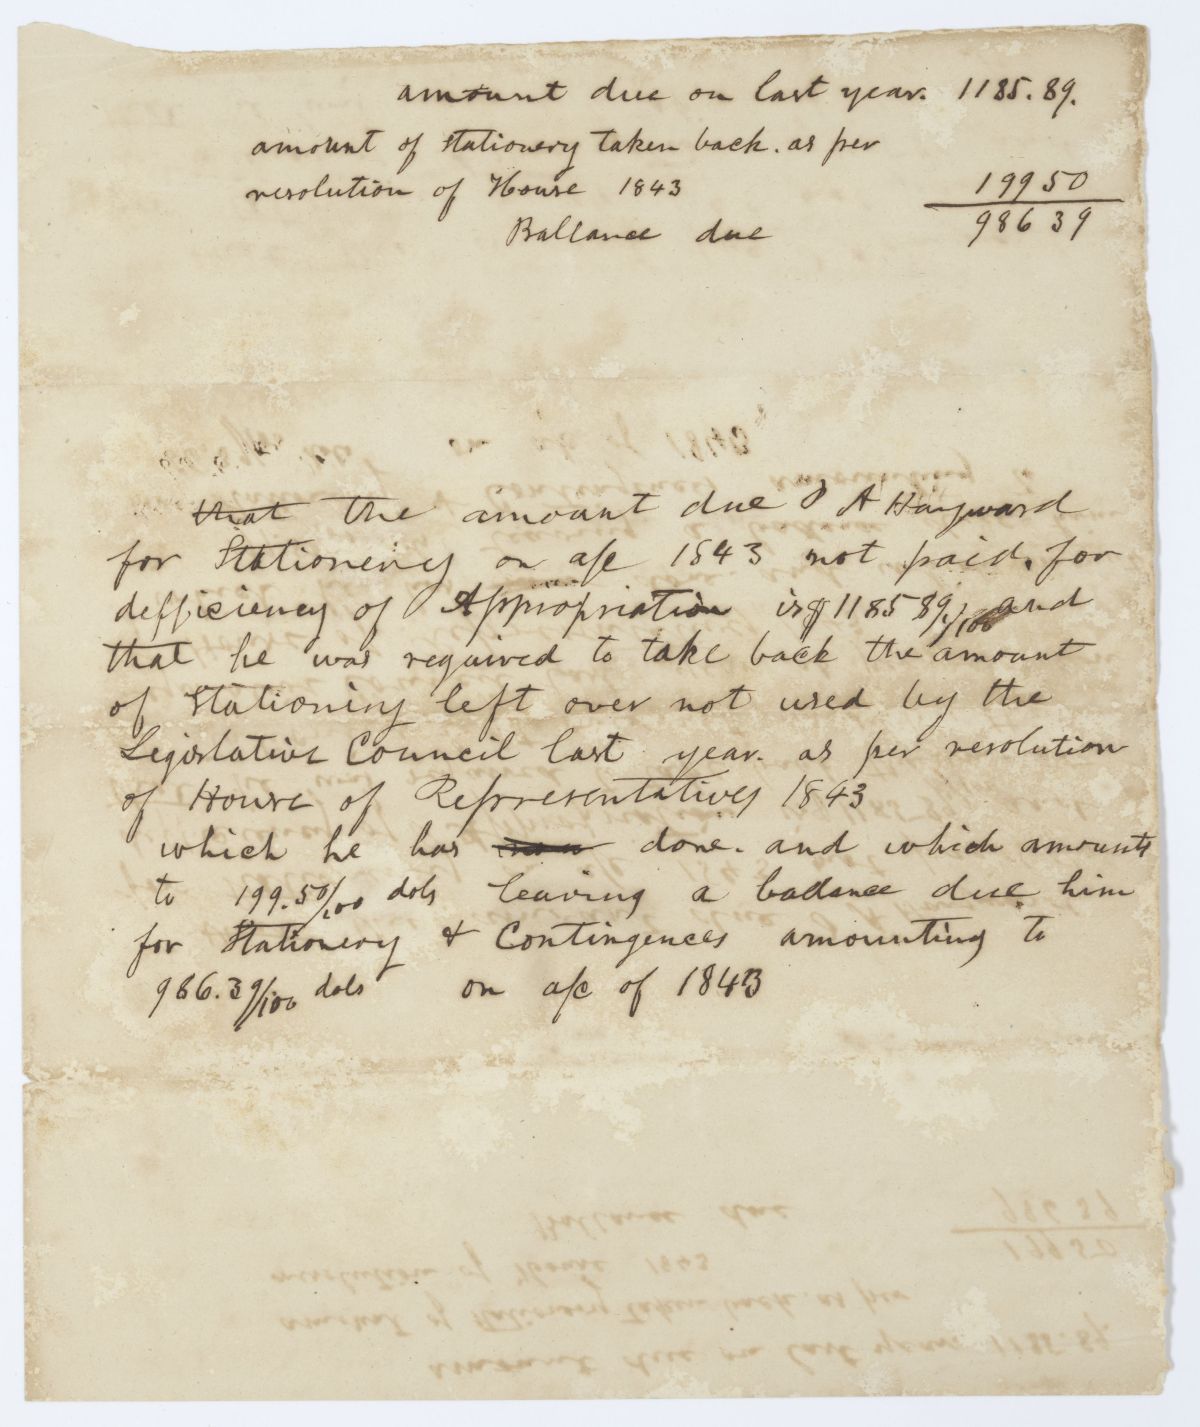 amount due on last year. 1185.89.
amount of Stationery taken back. as per
resolution of House 1843 199 50
Ballance due 986 39
that the amount due J A Hayward
for Stationery on a/c 1843 not paid, for
defficiency of Appropriation is $1185 89/100 and
that he was required to take back the amount
of Stationery left over not used by the
Legislative Council last year. as per resolution
of House of Representatives 1843
which he has done. and which amounts
to 199.50/100 dols leaving a ballance due him
for Stationery & Contingences amounting to
986.39/100 dols on a/c of 1843